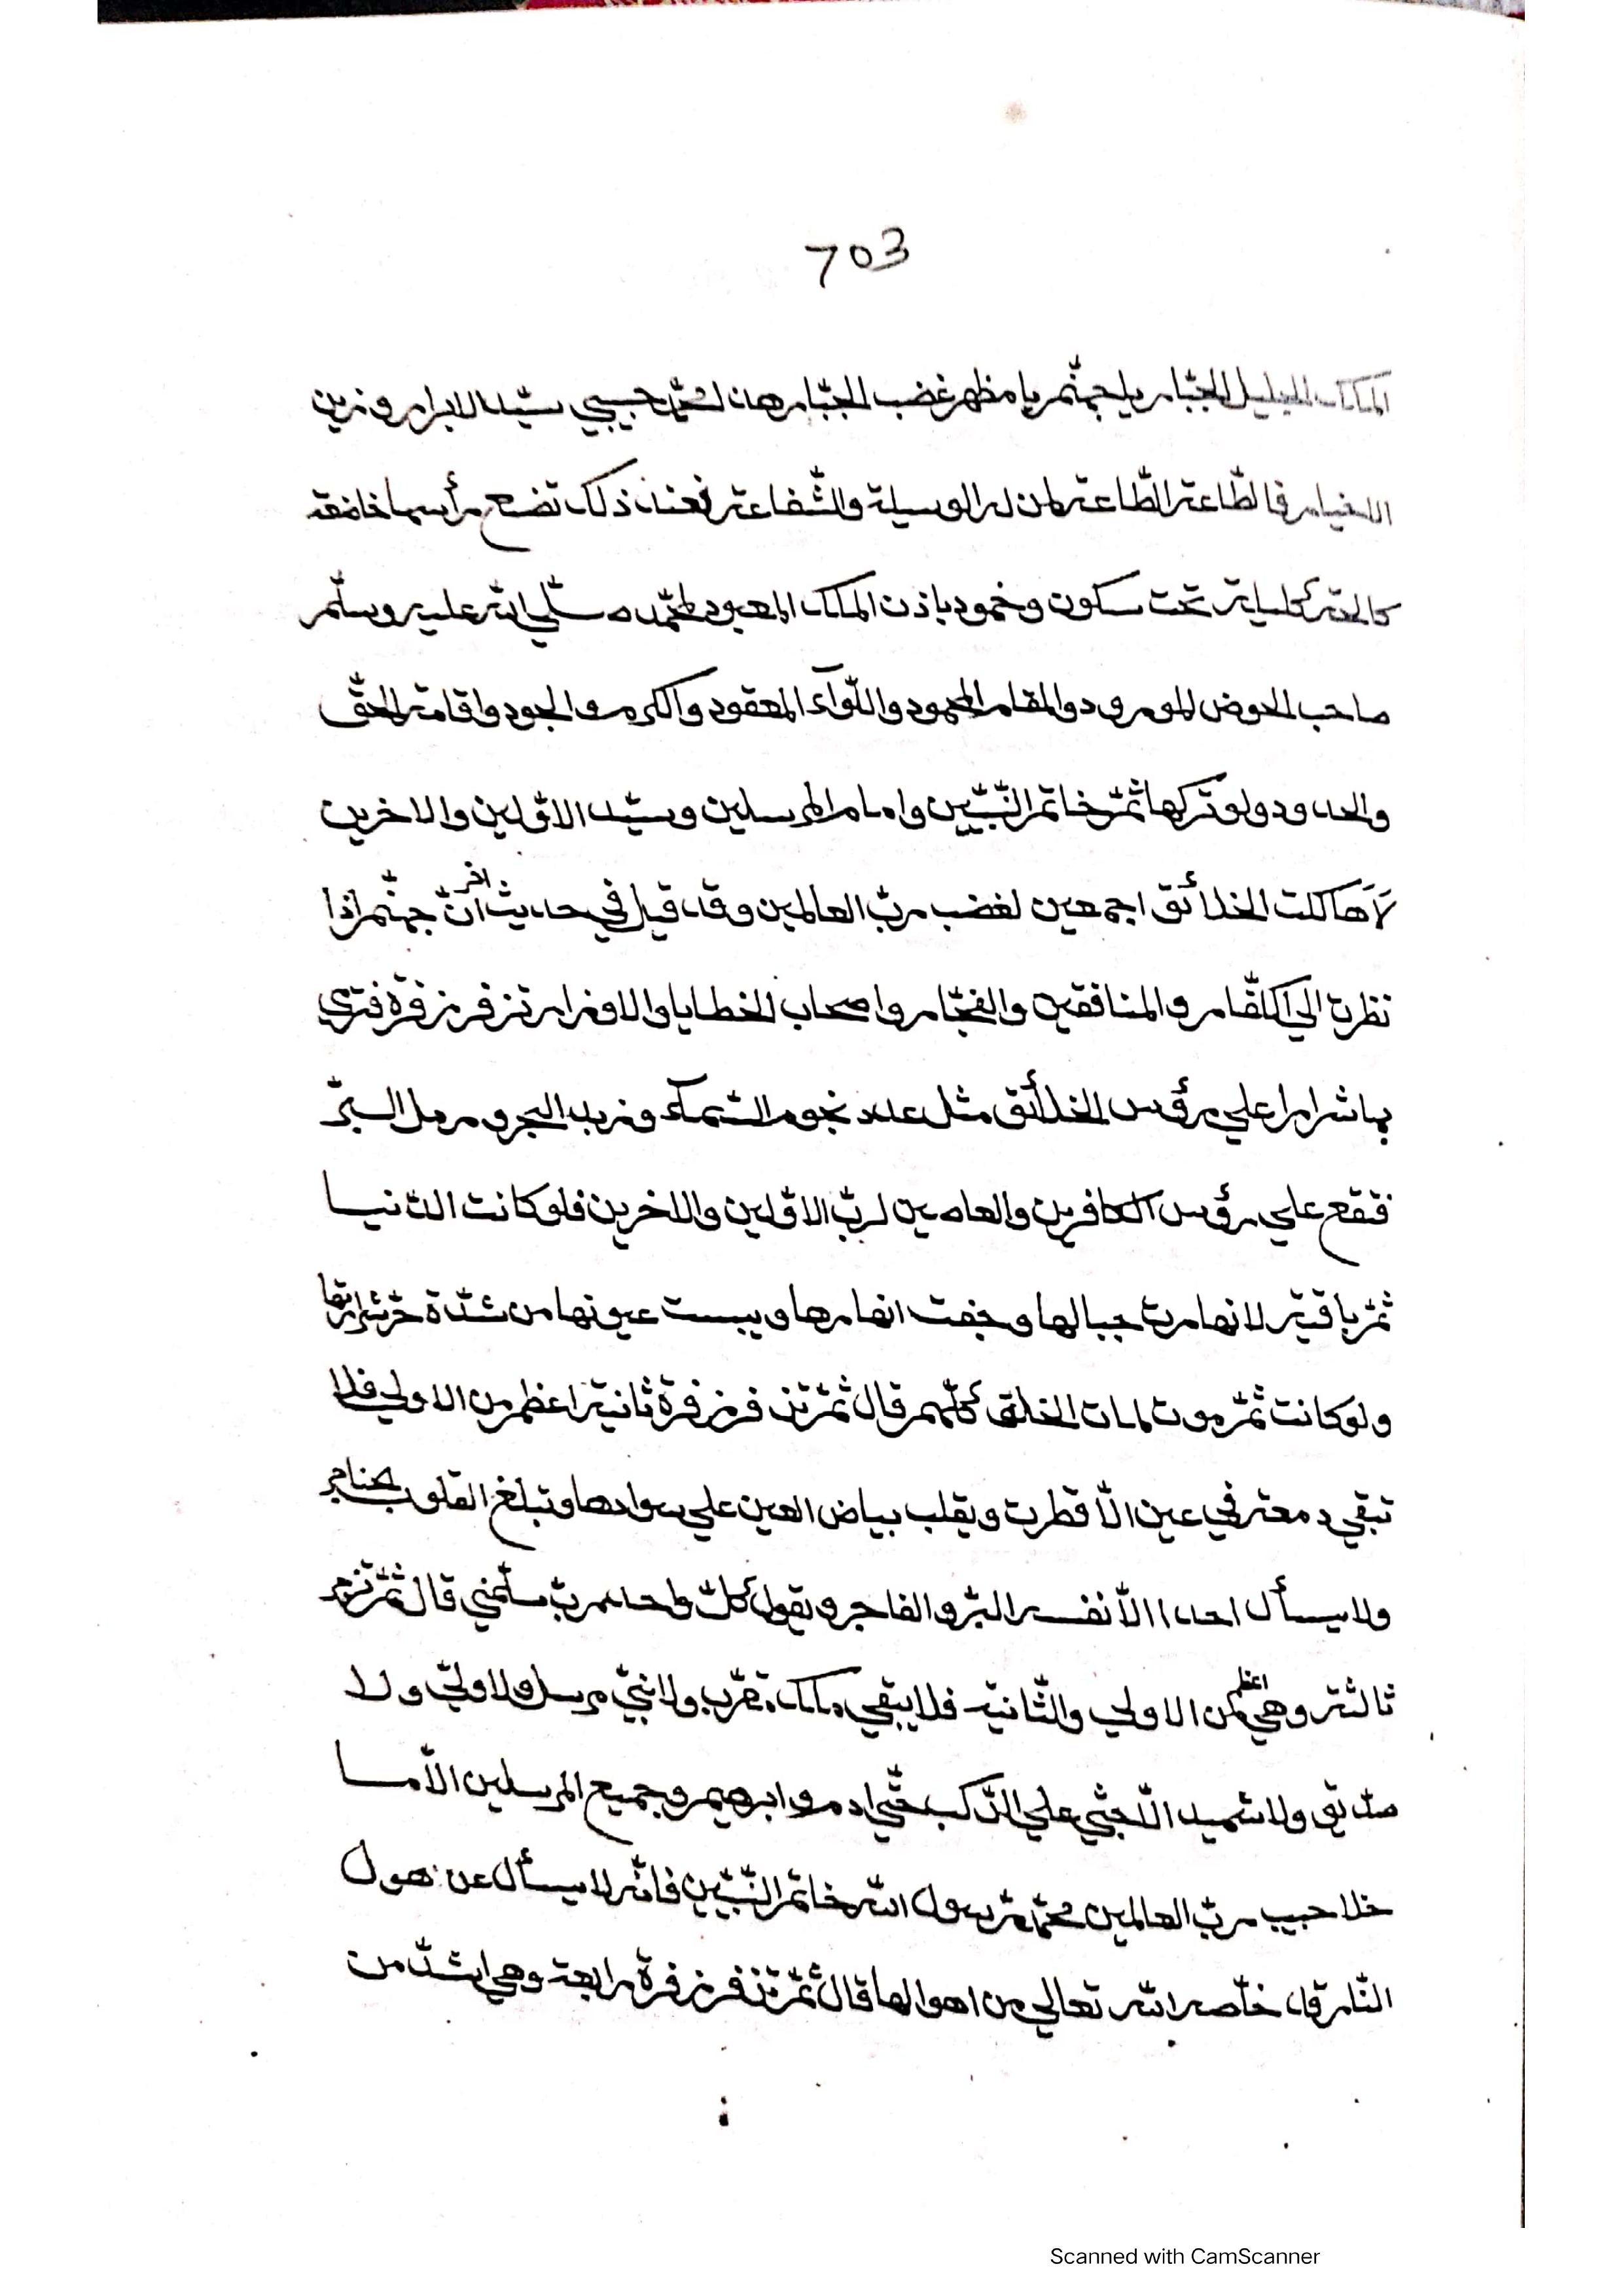 703
الملك الجليل الجبّار يا جهنّم يا مظهر غضب الجبّار هذا محمّد حبيبي سيّد الابرار وزين
الاخيار فالطّاعة الطّاعة لمن له الوسيلة والشّفاعة فعند ذلك تضع رأسها خافضة
تحت سكون وخمود باذن الملك المعبود لمحمّد صلّي الله عليه وسلّم
صاحب الحوض المورود والمقام المحمود واللّوآء المعقود والكرم والجود واقامة الحقّ
والحدود ولو تركها ثمّ خاتم النّبيّين وامام المرسلين وسيّد الاوّلين والاخرين
لَاَهلكت الخلائق اجمعين لغضب ربّ العالمين وقد قيل في حديث اخر انّ جهنّم اذا
نظرت الي الكفّار والمنافقين والفجّار واصحاب الخطايا والاوزار تزفر زفرة فترمي
بها شرارا علي رؤس الخلائق مثل عدد نجوم السّمآء وزبد البحر ورمل البرّ
فتقع علي رؤس الكافرين والعاصين لربّ الاوّلين والاخرين فلو كانت الدّنيا
ثمّ باقية لانهارت جبالها وجفت انهارها ويبست عيونها من شدّة حرّ شرارتها
ولو كانت ثمّ موت لمات الخلق كلّهم قال ثمّ تزفر زفرة ثانية اعظم من الاولي فلا
تبقي دمعة في عين الّا قطرت ويقلب بياض العين علي سوادها وتبلغ القلوب الحناجر
ولا يسأل احدا الّا نفسه البرّ والفاجر ويقول كلّ واحد ربّ سلّمني قال ثمّ تزفر
ثالثة وهي اعظم من الاولي والثّانية فلا يبقي ملك مقرّب ولا نبيّ مرسل ولا وليّ ولا
صدّيق ولا شهيد الّا جثي علي الرّكب حتّي ادم وابرهيم وجميع المرسلين الّا ما
خلا حبيب ربّ العالمين محمّد رسول الله خاتم النّبيّين فانّه لا يسأل عن هول
النّار قد خلّصه الله تعالي من اهوالها قال ثمّ تزفر زفرة رابعة وهي اشدّ من
Scanned with CamScanner